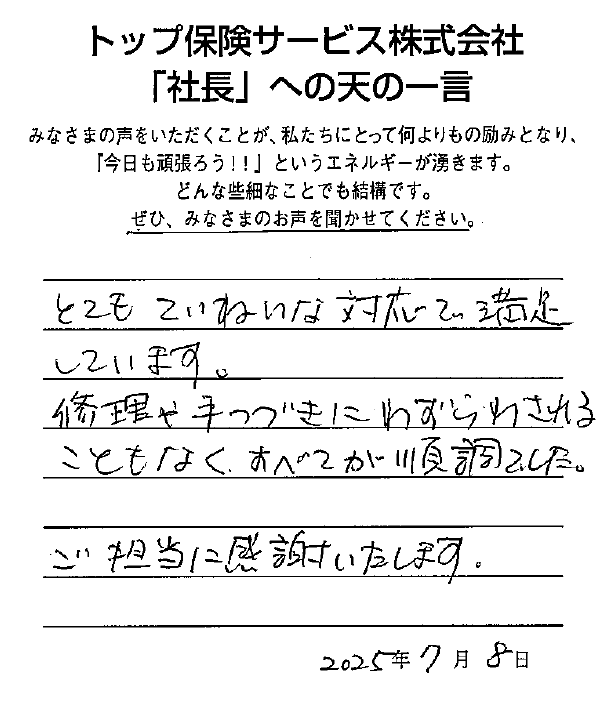 トップ保険サービス株式会社
「社長」への天の一言
みなさまの声をいただくことが、私たちにとって何よりもの励みとなり、
『今日も頑張ろう!!』というエネルギーが湧きます。
どんな些細なことでも結構です。
ぜひ、みなさまのお声を聞かせてください。
とてもていねいな対応で満足
しています。
修理や手つづきにわずらわされる
こともなく、すべてが順調でした。
ご担当に感謝いたします。
2025年7月8日